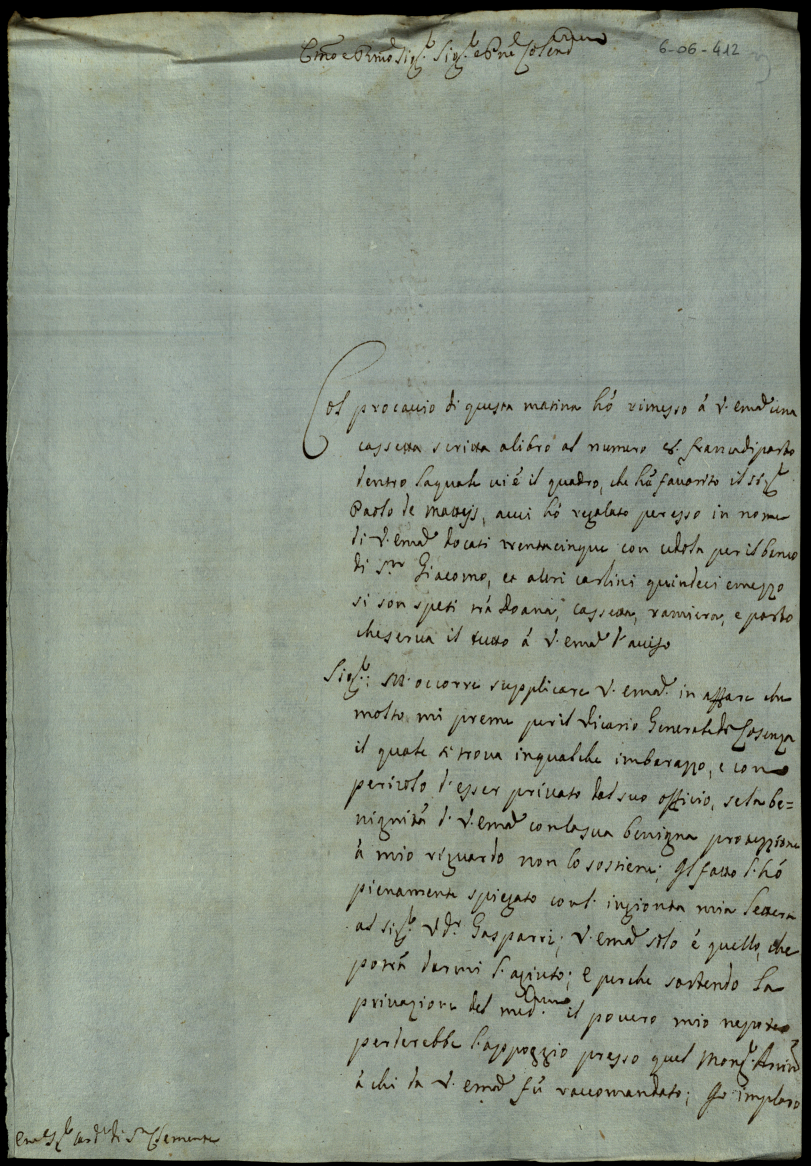 Em̃o e Rm̃o Sigr. Sigr. e Pne Colend
6-06-412
Col procaccio di questa matina hò rimesso à V. emã una
cassetta scritta a libro al numero 68. franca di porto
dentro la quale vi è il quadro, che hà favorito il sigr.
Paolo de matteijs, a cui hò regalato per esso in nome
di V. emã docati trentacinque con cedola per il banco
di Sn. Giacomo, et altri carlini quindeci e mezzo
si son spesi trà doana, cassetta, e porto
che serva il tutto à V. emã d'aviso
Sigr. M'occorre supplicare V. emã. in affare che
molto mi preme per il Vicario Generale di Cosenza
il quale si trova in qualche imbarazzo, e con
pericolo d'esser privato dal suo officio, se la be=
nignità di V. emã con la sua benigna protezzione
à mio riguardo non lo sostiene; Il fatto l'hò
pienamente spiegato con l'ingionta mia lettera
al sigr. Gasparri; V. emã solo è quello, che
potrà darmi l'agiuto; e perche sortendo la
privazione del med.mo il povero mio nepote
perderebbe l'appoggio presso quel Monsr. Arciv
à chi da V. emã fù raccomandato; Io imploro
Card. di Sn. Clemente